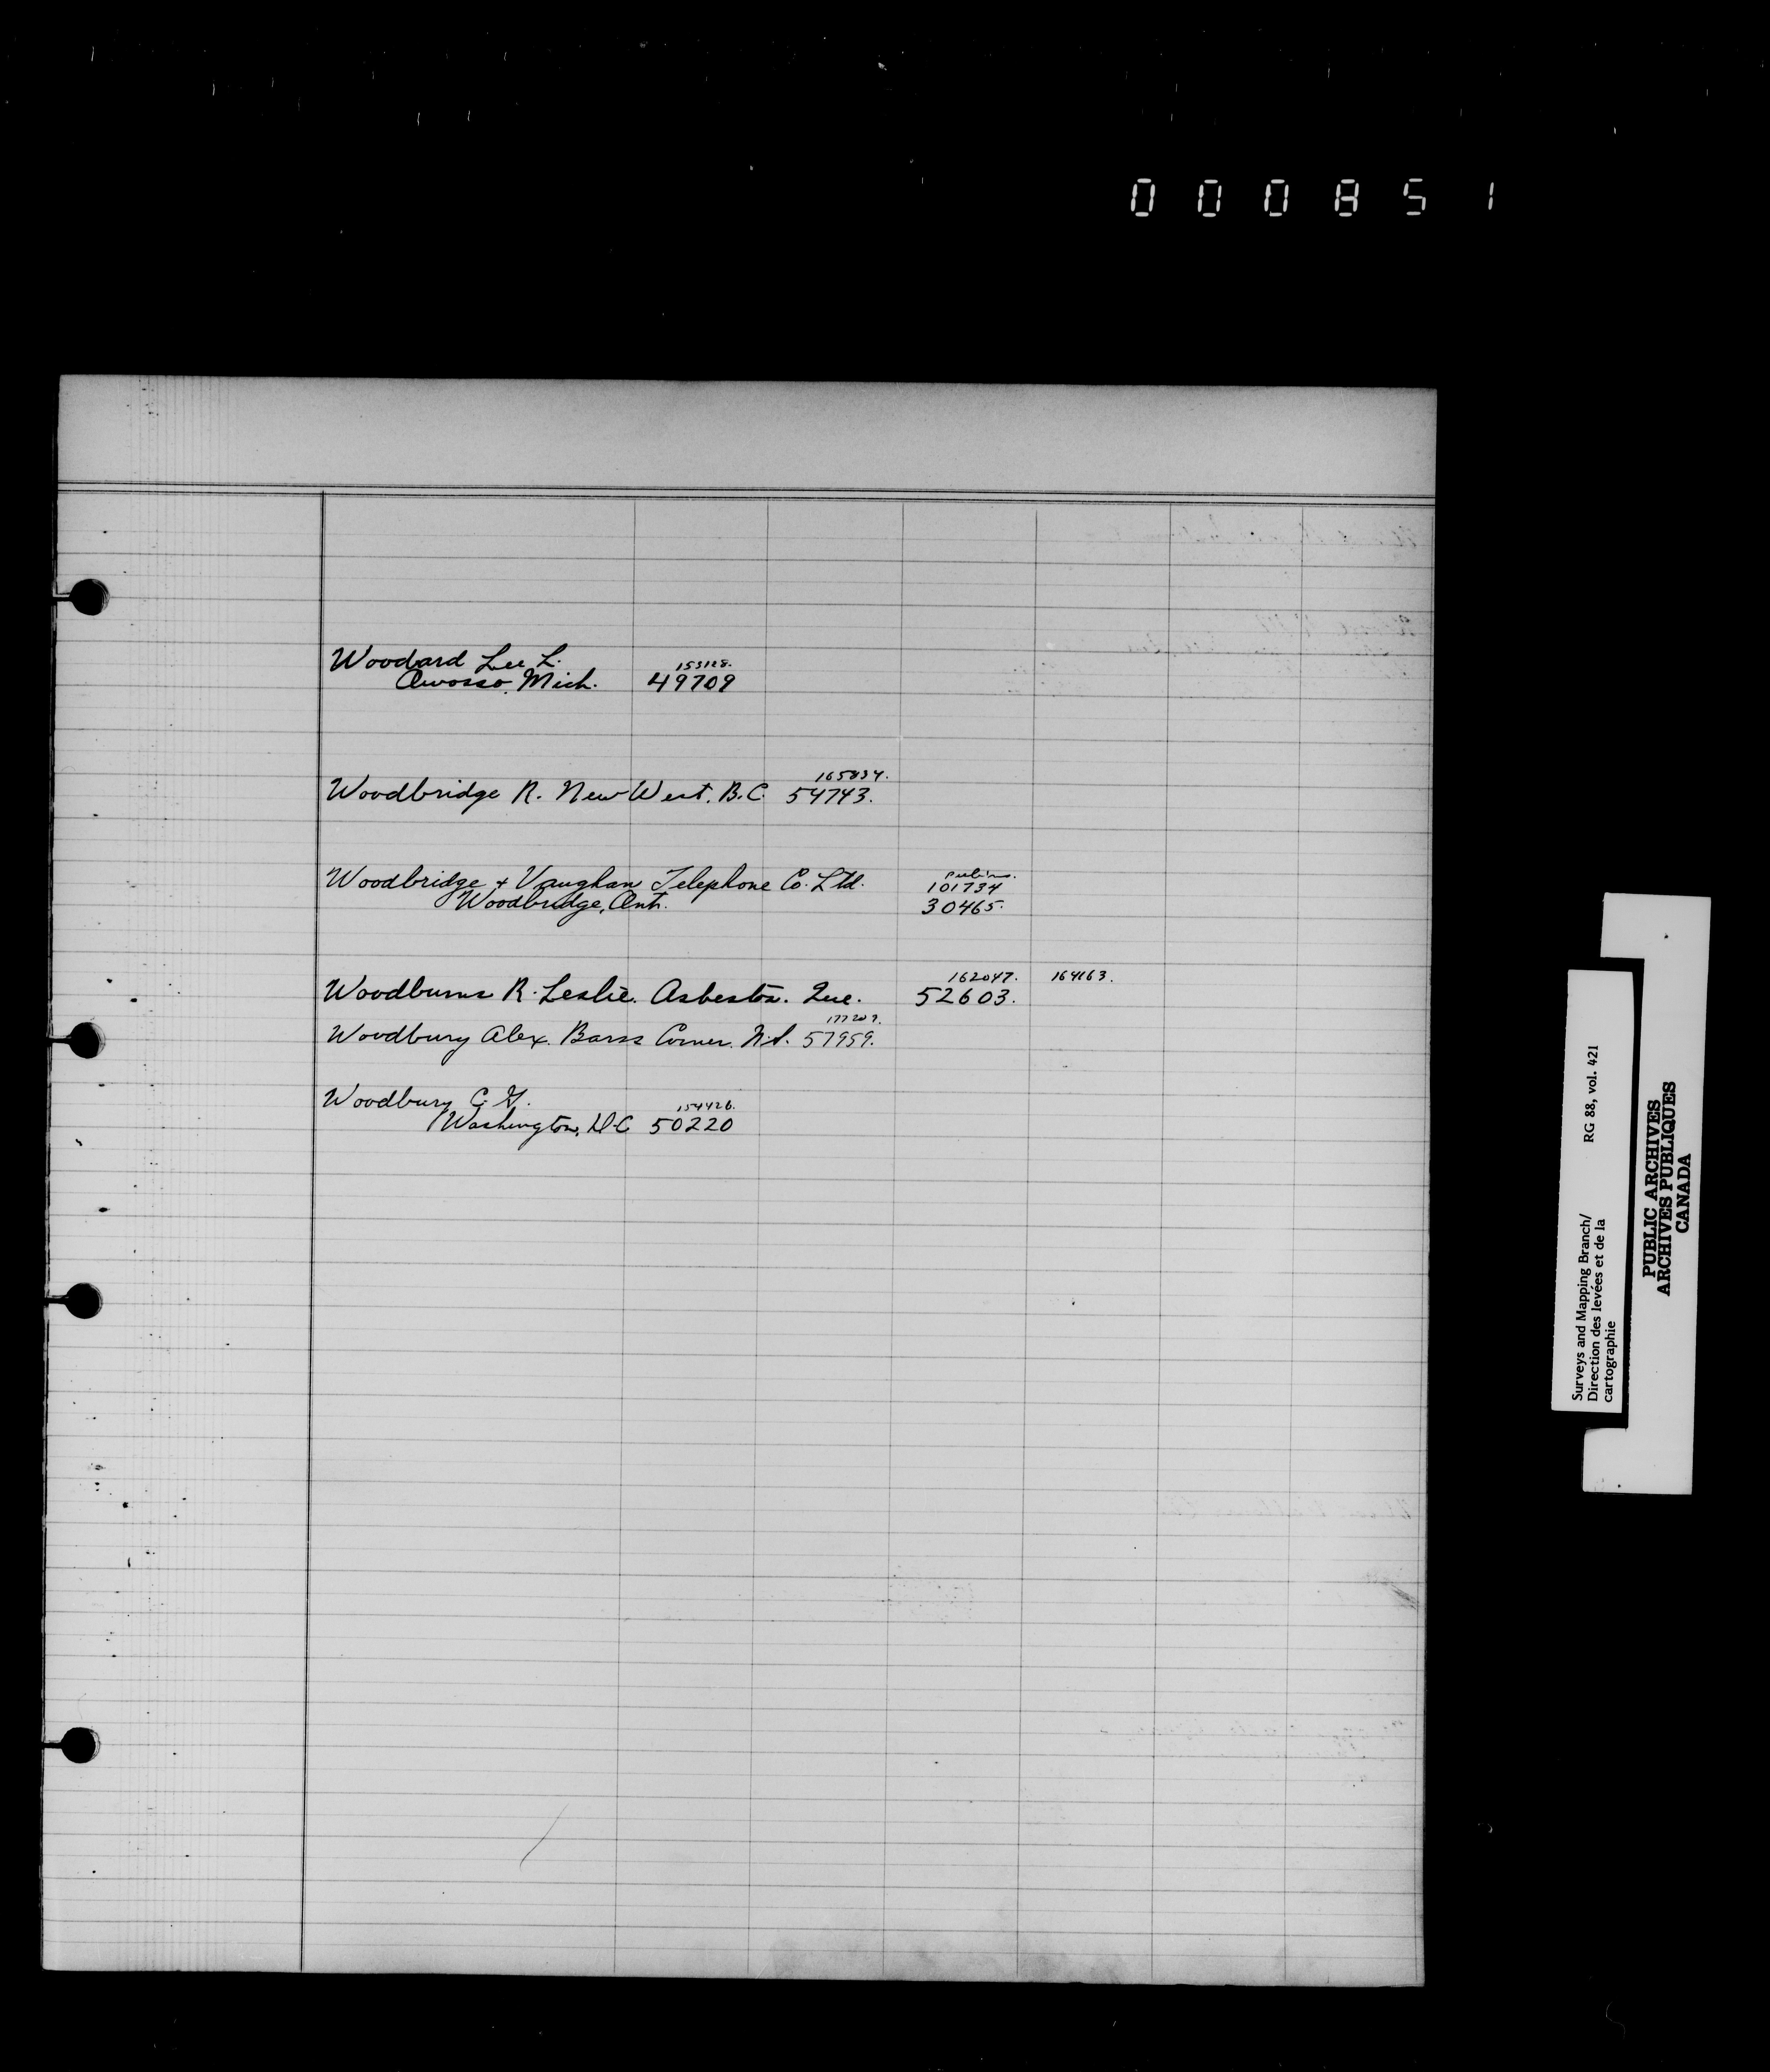 000851
Woodard Lee L.
153128.
Owosso, Mich. 49709
165834.
Woodbridge R. New West. B.C. 54743.
Woodbridge + Vaughan Telephone Co. Ltd. 101734
Woodbridge, Ont. 30465.
162047. 164163.
Woodburns R. Leslie. Asbestos. Que. 52603.
177207.
Woodbury Alex. Barss Corner. N.S. 57959.
Woodbury C. G.
154426.
Washington, D.C 50220
Surveys and Mapping Branch/
Direction des levées et de la
cartographie
RG 88, vol. 421
PUBLIC ARCHIVES
ARCHIVES PUBLIQUES
CANADA